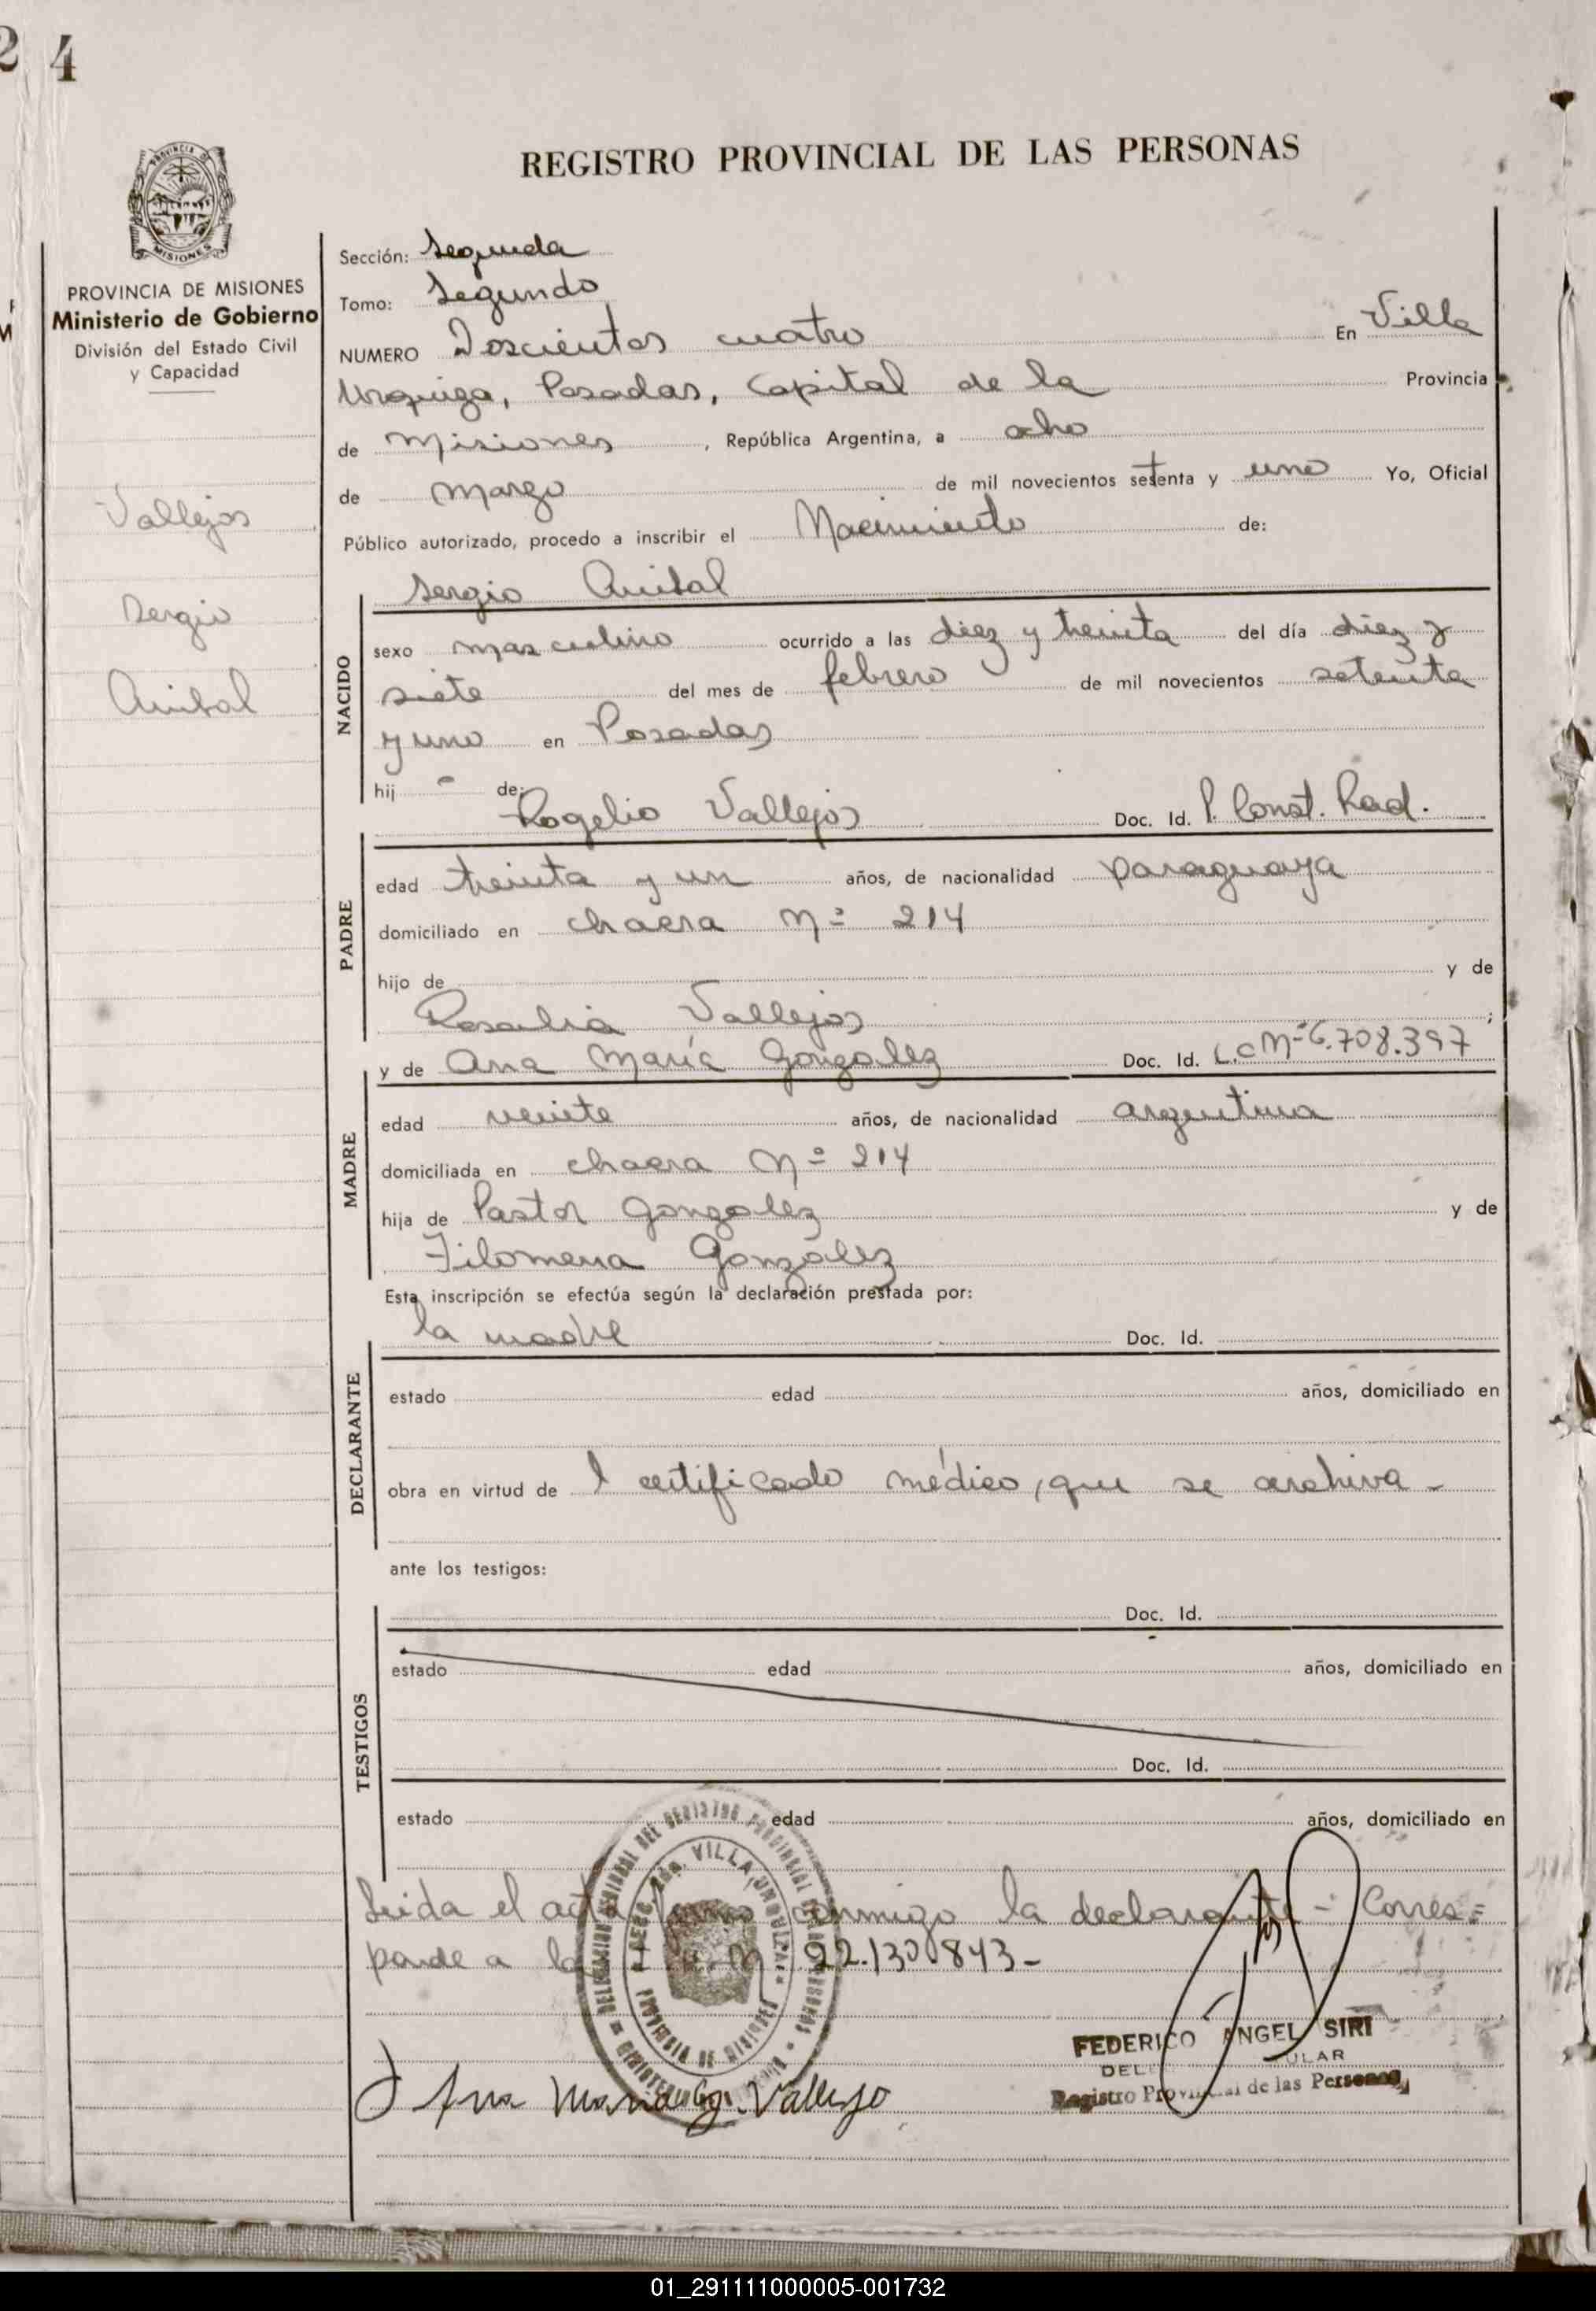 2 4
REGISTRO PROVINCIAL DE LAS PERSONAS
PROVINCIA DE MISIONES
PROVINCIA DE MISIONES
Ministerio de Gobierno
División del Estado Civil
y Capacidad
Vallejos
Sergio
Anibal
Sección: Segunda
Tomo: Segundo
NUMERO Doscientos cuatro En Villa
Urquiza, Posadas, Capital de la Provincia
de Misiones, República Argentina, a ocho
de Marzo de mil novecientos setenta y uno Yo, Oficial
Público autorizado, procedo a inscribir el Nacimiento de:
Sergio Anibal
NACIDO
sexo masculino ocurrido a las diez y treinta del día diez y
siete del mes de febrero de mil novecientos setenta
y uno en Posadas
hij o de:
Rogelio Vallejos Doc. Id. P. Const. Rad.
PADRE
edad treinta y un años, de nacionalidad paraguaya
domiciliado en chacra Nº 214
hijo de y de
Rosalia Vallejos ;
y de Ana María Gonzalez Doc. Id. L.C Nº 6.708.397
MADRE
edad veinte años, de nacionalidad argentina
domiciliada en chacra Nº 214
hija de Pastor Gonzalez y de
Filomena González
Esta inscripción se efectúa según la declaración prestada por:
la madre Doc. Id.
DECLARANTE
estado edad años, domiciliado en
obra en virtud de l certificado médico, que se archiva -
ante los testigos:
Doc. Id.
TESTIGOS
estado edad años, domiciliado en
Doc. Id.
estado edad años, domiciliado en
Leida el acta firma conmigo la declarante - Corres=
ponde a la Nº 22.130.843-
VILLA URQUIZA
PROVINCIA DE MISIONES
FEDERICO ANGEL SIRI
Registro Provincial de las Personas
Ana Maria G. Vallejo
01_291111000005-001732